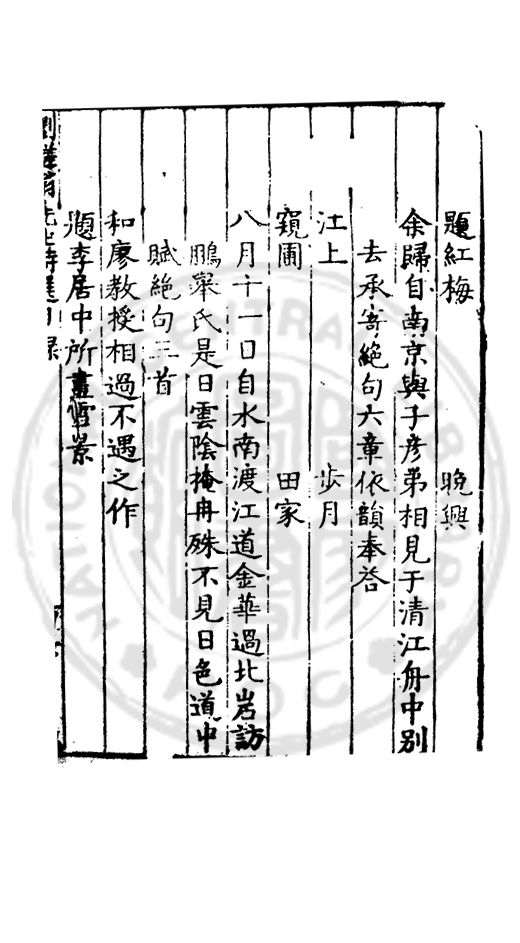 題紅梅　晚興
余歸自南京與子彥弟相見于清江舟中別
去承寄絕句六章依韻奉答
江上　步月
窺圃　田家
八月十一日自水南渡江道金華過北岩訪
鵬舉氏是日雲陰掩冉殊不見日色道中
賦絕句三首
和廖教授相過不遇之作
題李居中所畫雪景